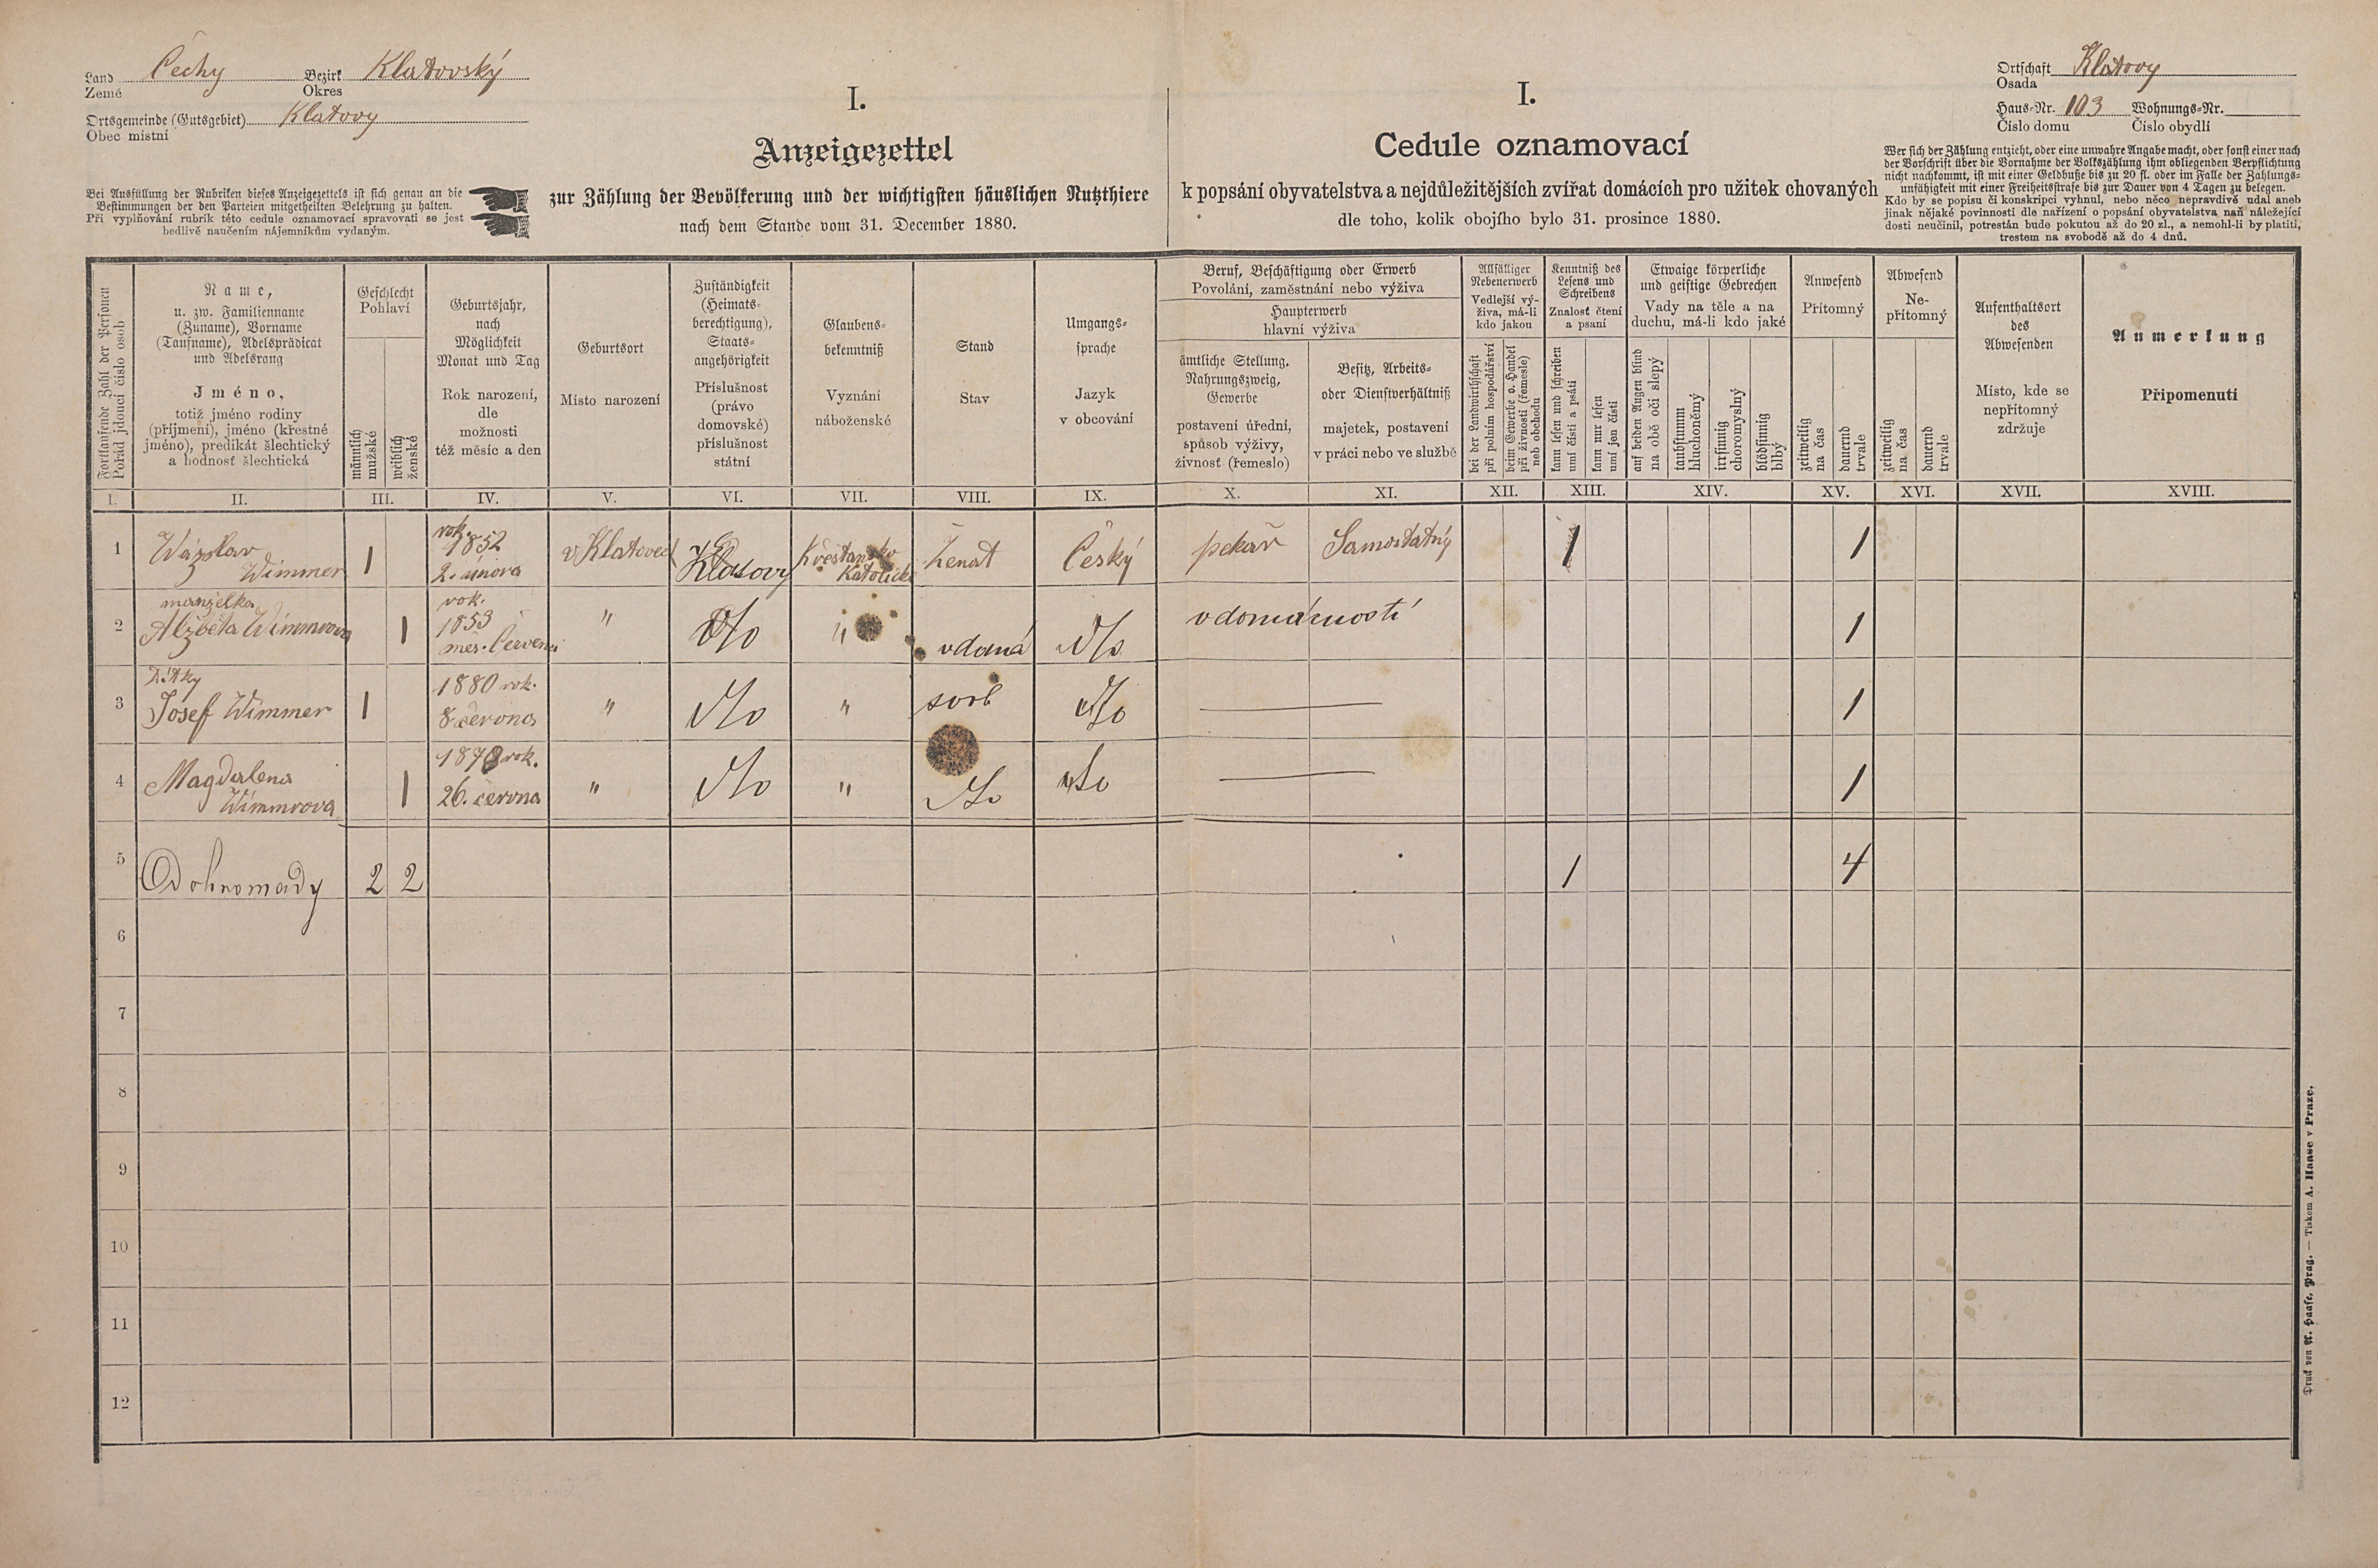 Land Čechy Bezirk Klatovský
Země Okres
Ortsgemeinde (Gutsgebiet) Klatovy
Obec místní
Bei Ausfüllung der Rubriken dieses Anzeigezettels ist sich genau an die
Bestimmungen der den Parteien mitgetheilten Belehrung zu halten.
Při vyplňování rubrik této cedule oznamovací spravovati se jest
bedlivě naučením nájemníkům vydaným.
I.
Anzeigezettel
zur Zählung der Bevölkerung und der wichtigsten häuslichen Nutzthiere
nach dem Stande vom 31. December 1880.
I.
Cedule oznamovací
k popsání obyvatelstva a nejdůležitějších zvířat domácích pro užitek chovaných
dle toho, kolik obojího bylo 31. prosince 1880.
Ortschaft Klatovy
Osada
Haus-Nr. 103 Wohnungs-Nr.
Číslo domu Číslo obydlí
Wer sich der Zählung entzieht, oder eine unwahre Angabe macht, oder sonst einer nach
der Vorschrift über die Vornahme der Volkszählung ihm obliegenden Verpflichtung
nicht nachkommt, ist mit einer Geldbuße bis zu 20 fl. oder im Falle der Zahlungs-
unfähigkeit mit einer Freiheitsstrafe bis zur Dauer von 4 Tagen zu belegen.
Kdo by se popisu či konskripci vyhnul, nebo něco nepravdivě udal aneb
jinak nějaké povinnosti dle nařízení o popsání obyvatelstva naň náležející
dosti neučinil, potrestán bude pokutou až do 20 zl., a nemohl-li by platiti,
trestem na svobodě až do 4 dnů.
Fortlaufende Zahl der Personen
Pořád jdoucí číslo osob
Name,
u. zw. Familienname
(Zuname), Vorname
(Taufname), Adelsprädicat
und Adelsrang
Jméno,
totiž jméno rodiny
(příjmení), jméno (křestné
jméno), predikát šlechtický
a hodnosť šlechtická
Geschlecht
Pohlaví
männlich
mužské
weiblich
ženské
Geburtsjahr,
nach
Möglichkeit
Monat und Tag
Rok narození,
dle
možnosti
též měsíc a den
Geburtsort
Místo narození
Zuständigkeit
(Heimats-
berechtigung),
Staats-
angehörigkeit
Příslušnost
(právo
domovské)
příslušnost
státní
Glaubens-
bekenntniß
Vyznání
náboženské
Stand
Stav
Umgangs-
sprache
Jazyk
v obcování
Beruf, Beschäftigung oder Erwerb
Povolání, zaměstnání nebo výživa
Haupterwerb
hlavní výživa
ämtliche Stellung,
Nahrungszweig,
Gewerbe
postavení úřední,
spůsob výživy,
živnosť (řemeslo)
Besitz, Arbeits-
oder Dienstverhältniß
majetek, postavení
v práci nebo ve službě
Allfälliger
Nebenerwerb
Vedlejší vý-
živa, má-li
kdo jakou
bei der Landwirthschaft
při polním hospodářství
beim Gewerbe o. Handel
při živnosti (řemesle)
neb obchodu
Kenntniß des
Lesens und
Schreibens
Znalosť čtení
a psaní
kann lesen und schreiben
umí čísti a psáti
kann nur lesen
umí jen čísti
Etwaige körperliche
und geistige Gebrechen
Vady na těle a na
duchu, má-li kdo jaké
auf beiden Augen blind
na obě oči slepý
taubstumm
hluchoněmý
irrsinnig
choromyslný
blödsinnig
blbý
Anwesend
Přítomný
zeitweilig
na čas
dauernd
trvale
Abwesend
Ne-
přítomný
zeitweilig
na čas
dauernd
trvale
Aufenthaltsort
des
Abwesenden
Místo, kde se
nepřítomný
zdržuje
Anmerkung
Připomenutí
I. II. III. IV. V. VI. VII. VIII. IX. X. XI. XII. XIII. XIV. XV. XVI. XVII. XVIII.
1 Wázslav Wimmer 1 rok. 1852 2. února v Klatovech Klatovy Křestansko Katolické ženat Český pekař Samostatný 1 1
2 manželka Alžběta Wimmrova 1 rok. 1853 měs. Červenci " " vdaná v domácnosti 1
3 Dítky Josef Wimmer 1 1880 rok. 8 června " " svob 1
4 Magdalena Wimmrova 1 1878 rok. 26. června " " 1
5 Dohromady 2 2 1 4
6
7
8
9
10
11
12
Druck von A. Haase, Prag. — Tiskem A. Haase v Praze.